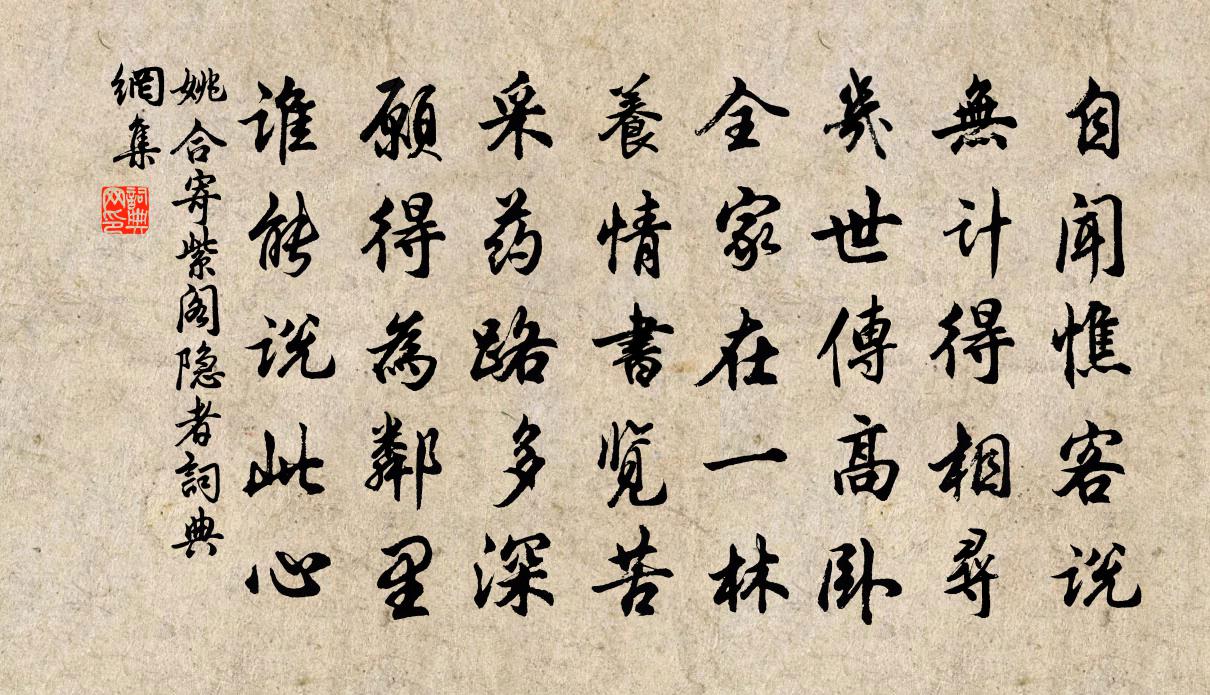 自闻憔客说
無计得相尋
幾世傳高卧
全家在一林
養情書览苦
采药路多深
願得為鄰里
谁能说此心
姚合寄紫阁隐者詞典
網集
詞典
网印